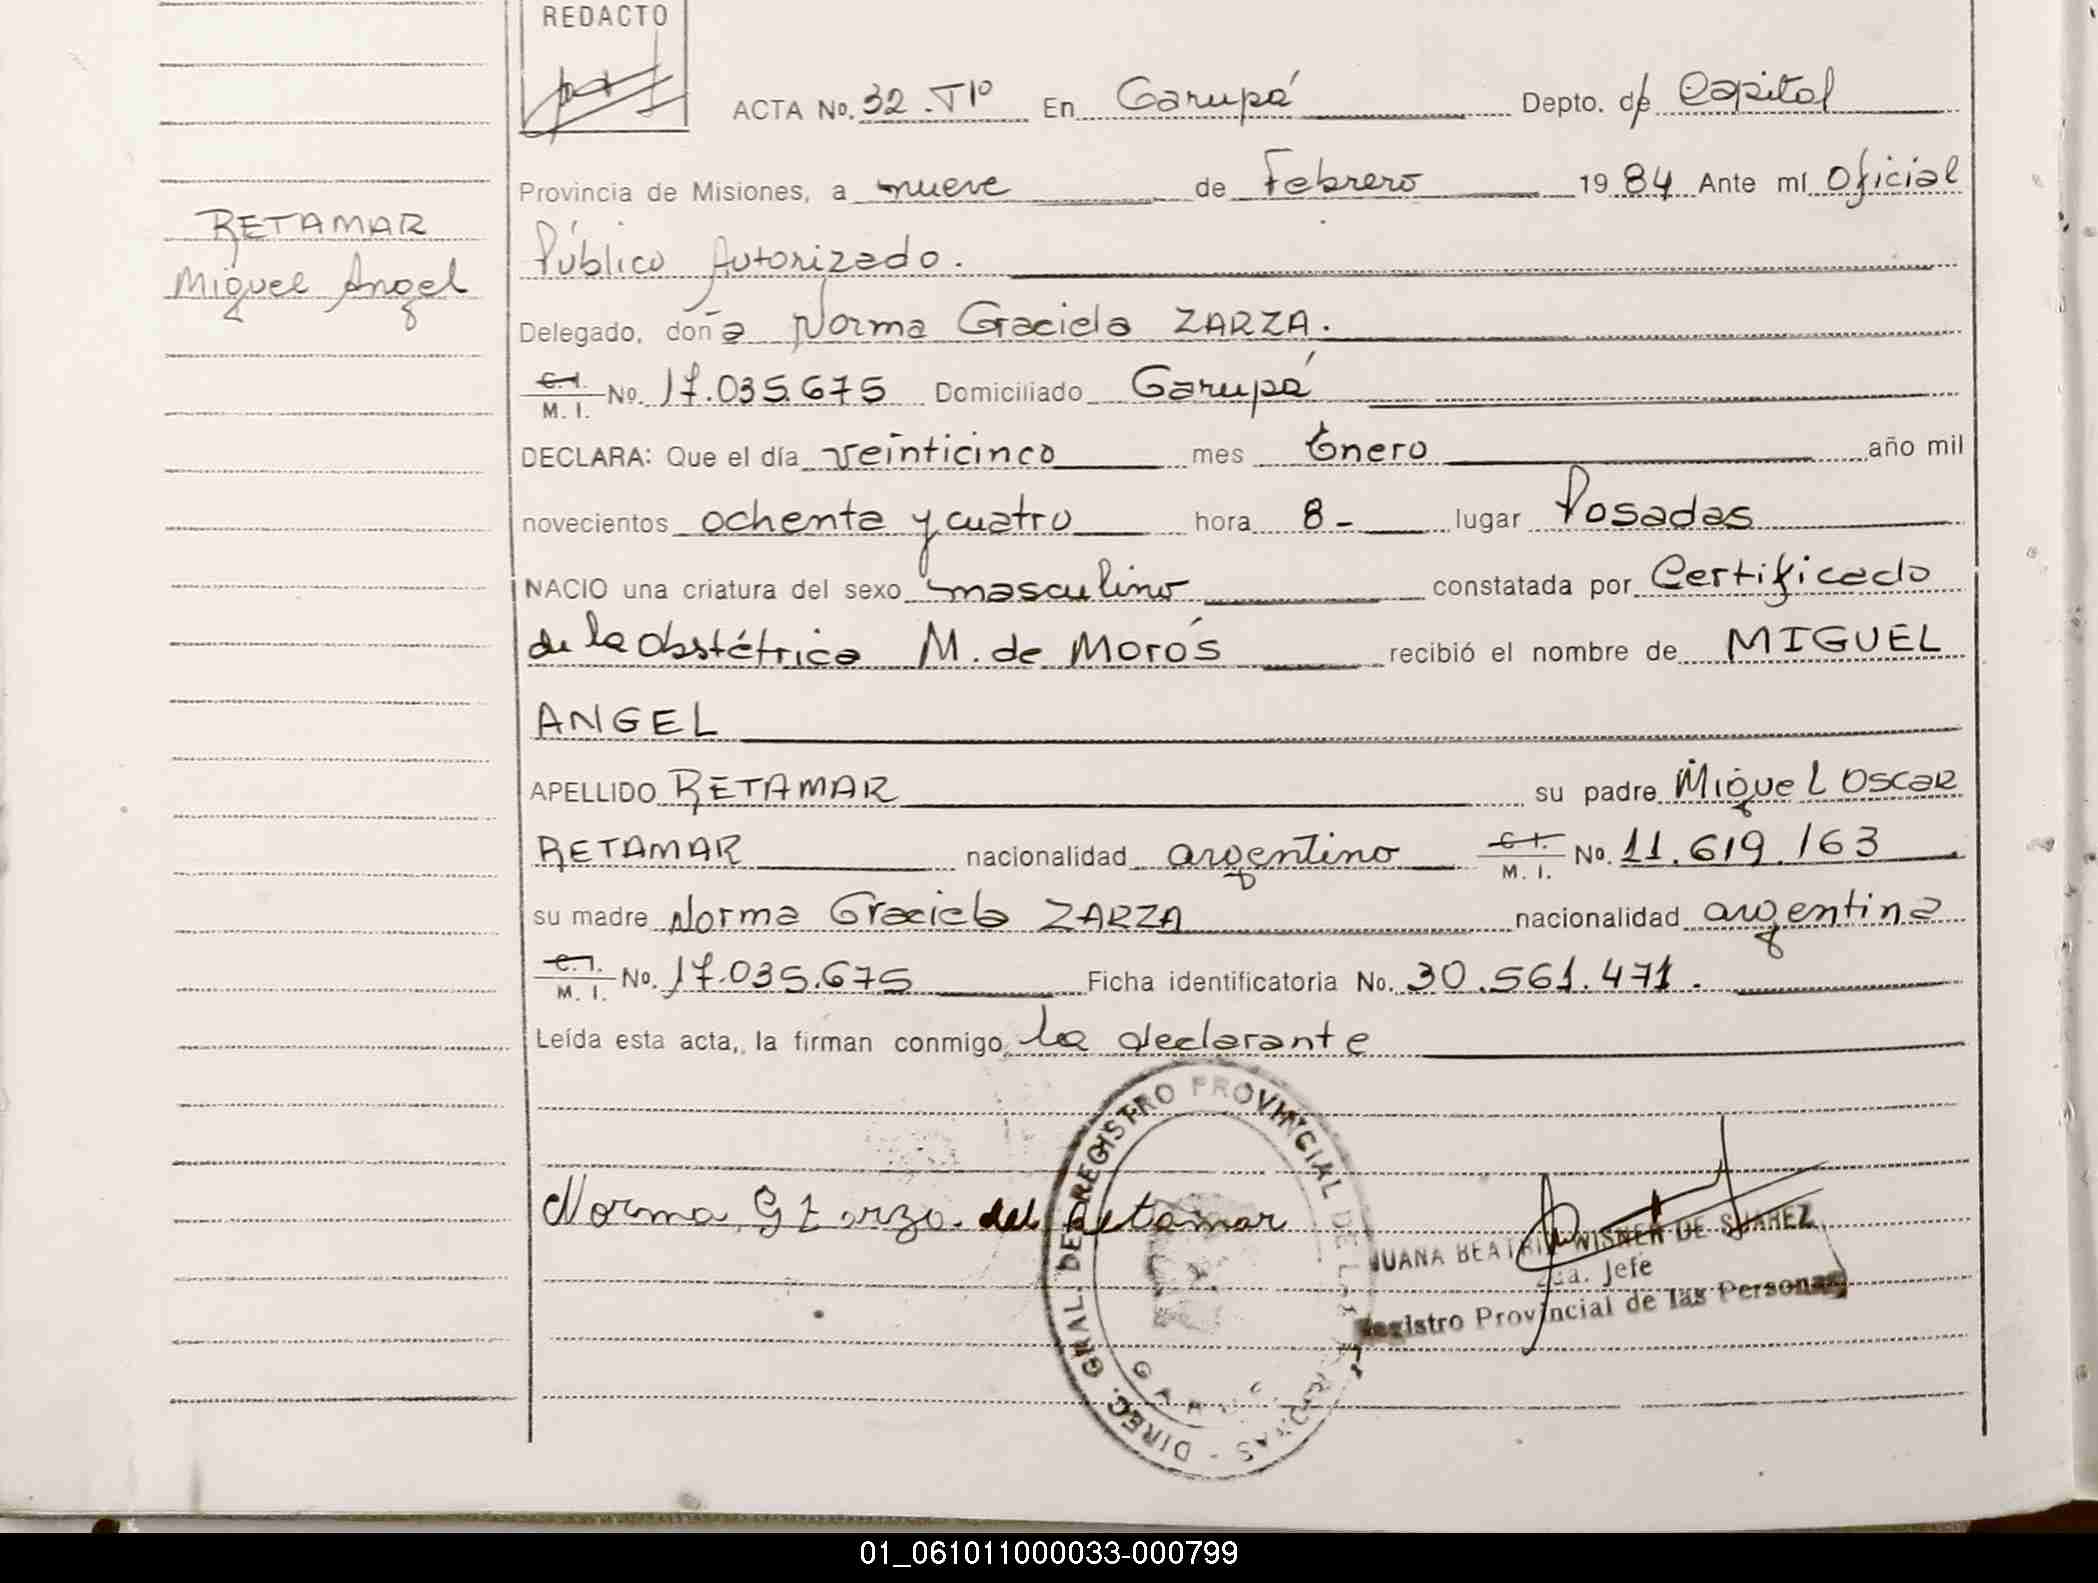 REDACTO
ACTA No. 32. T1º En Garupá Depto. de Capital
Provincia de Misiones, a nueve de Febrero 19 84 Ante mí Oficial
Público Autorizado.
RETAMAR
Miguel Angel
Delegado, doña Norma Graciela ZARZA.
C.I. M.I. No. 17.035.675 Domiciliado Garupá
DECLARA: Que el día veinticinco mes Enero año mil
novecientos ochenta y cuatro hora 8- lugar Posadas
NACIO una criatura del sexo masculino constatada por Certificado
de la Obstétrica M. de Morós recibió el nombre de MIGUEL
ANGEL
APELLIDO RETAMAR su padre Miguel Oscar
RETAMAR nacionalidad argentino C.I. M.I. No. 11.619.163
su madre Norma Graciela ZARZA nacionalidad argentina
C.I. M.I. No. 17.035.675 Ficha identificatoria No. 30.561.471.
Leída esta acta, la firman conmigo, la declarante
DIREC. GRAL. DEL REGISTRO PROVINCIAL DE LAS PERSONAS
Norma G Zarza. del Retamar
JUANA BEATRIZ WISNER DE SUAREZ
2da. Jefe
Registro Provincial de las Personas
01_061011000033-000799